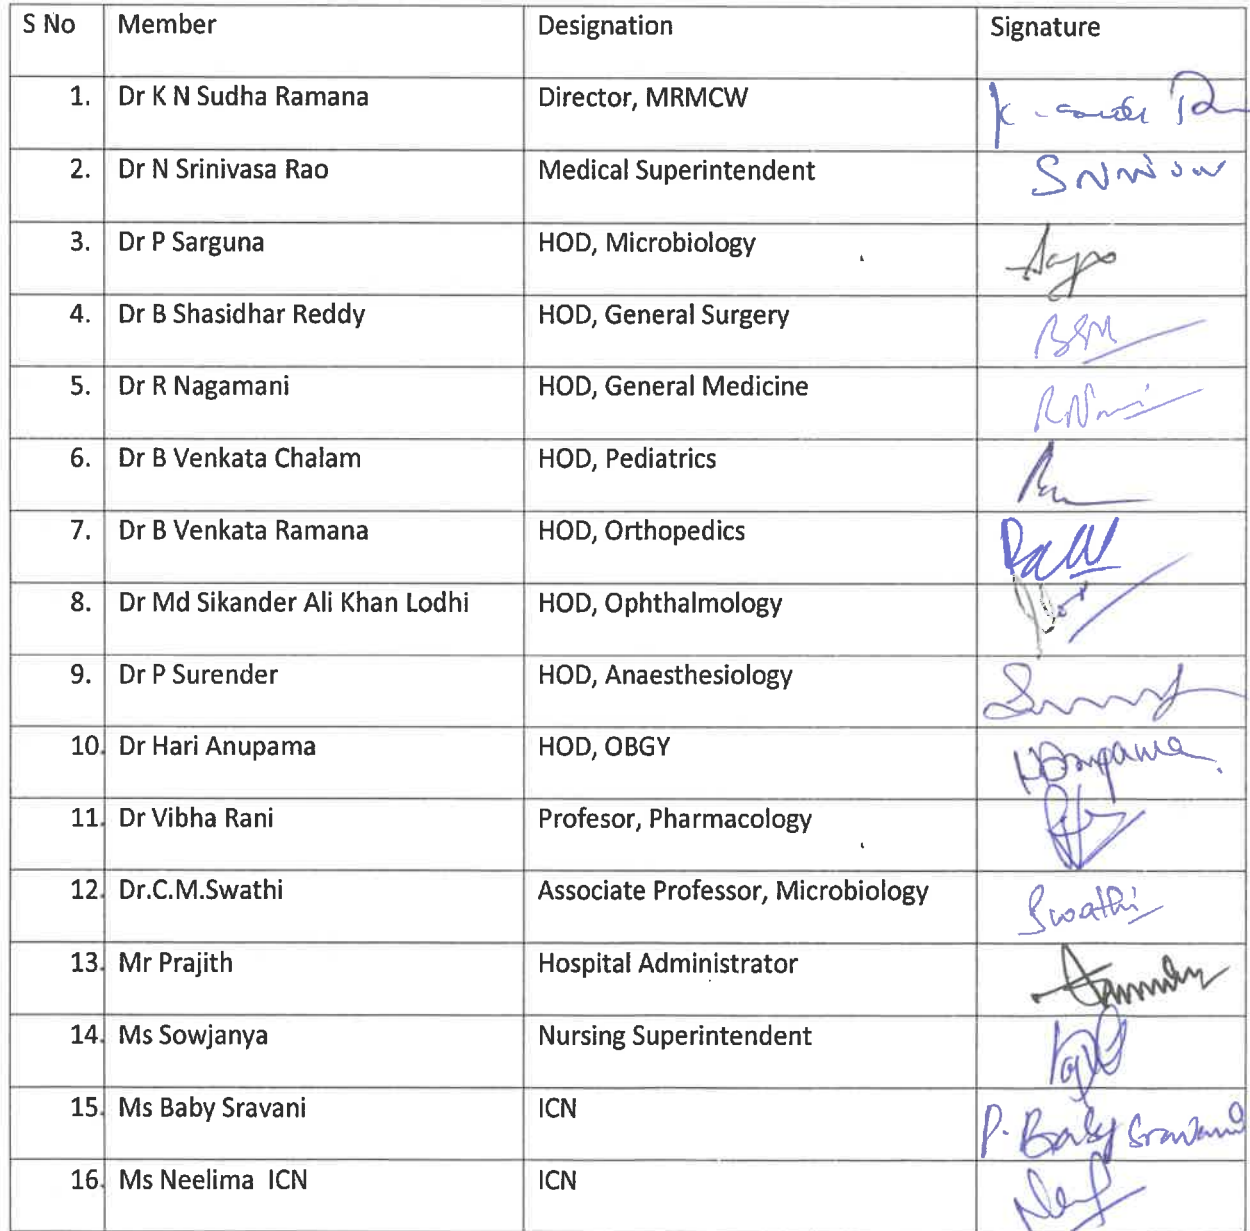 S No Member Designation Signature
1. Dr K N Sudha Ramana Director, MRMCW
2. Dr N Srinivasa Rao Medical Superintendent
3. Dr P Sarguna HOD, Microbiology
4. Dr B Shasidhar Reddy HOD, General Surgery
5. Dr R Nagamani HOD, General Medicine
6. Dr B Venkata Chalam HOD, Pediatrics
7. Dr B Venkata Ramana HOD, Orthopedics
8. Dr Md Sikander Ali Khan Lodhi HOD, Ophthalmology
9. Dr P Surender HOD, Anaesthesiology
10. Dr Hari Anupama HOD, OBGY
11. Dr Vibha Rani Profesor, Pharmacology
12. Dr.C.M.Swathi Associate Professor, Microbiology Swathi
13. Mr Prajith Hospital Administrator
14. Ms Sowjanya Nursing Superintendent
15. Ms Baby Sravani ICN P. Baby Sravani
16. Ms Neelima ICN ICN